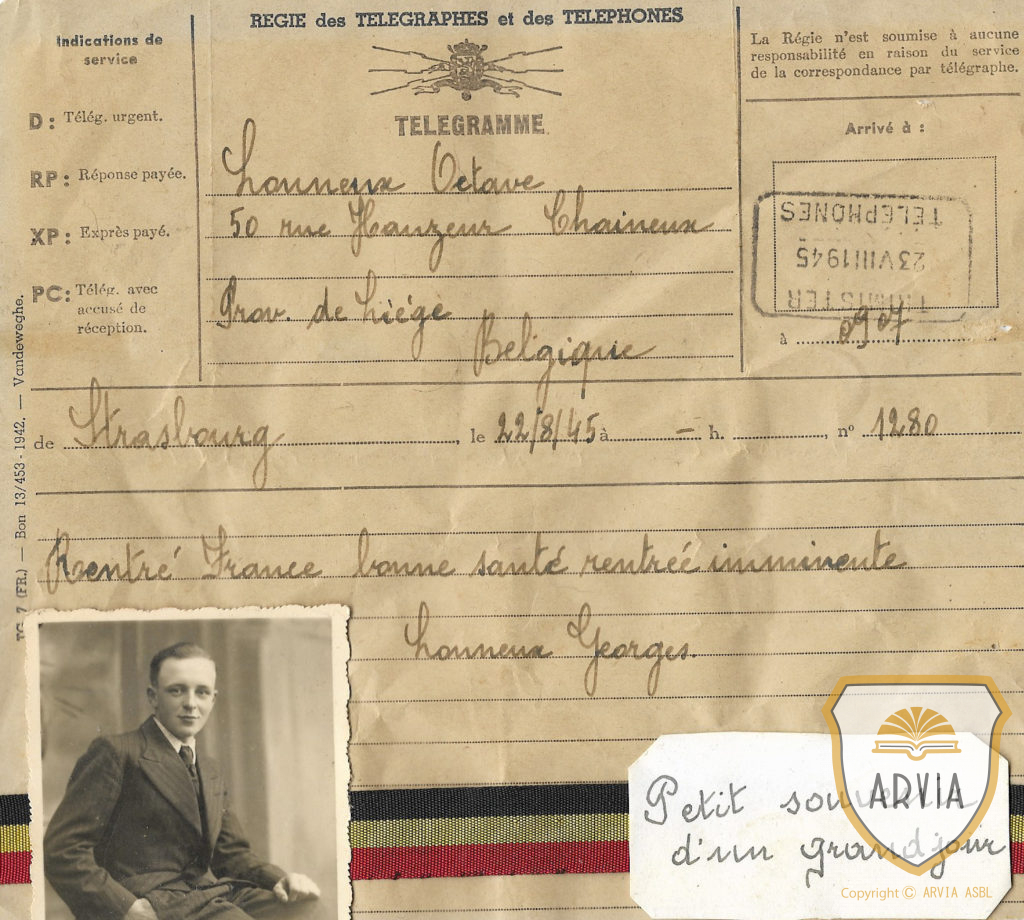 REGIE des TELEGRAPHES et des TELEPHONES
Indications de
service
D : Télég. urgent.
RP : Réponse payée.
XP : Exprès payé.
PC : Télég. avec
accusé de
réception.
TELEGRAMME.
Lonneux Octave
50 rue Hauzeur Chaineux
Prov. de Liége
Belgique
La Régie n'est soumise à aucune
responsabilité en raison du service
de la correspondance par télégraphe.
Arrivé à :
TELEPHONES
23 VIII 1945
à
de Strasbourg, le 22/8/45 à — h. , nº 1280
Rentré France bonne santé rentréé imminente
Lonneux Georges.
(FR.) — Bon 13/453 - 1942. — Vandeweghe.
Petit souvenir
d'un grand jour
ARVIA
Copyright © ARVIA ASBL